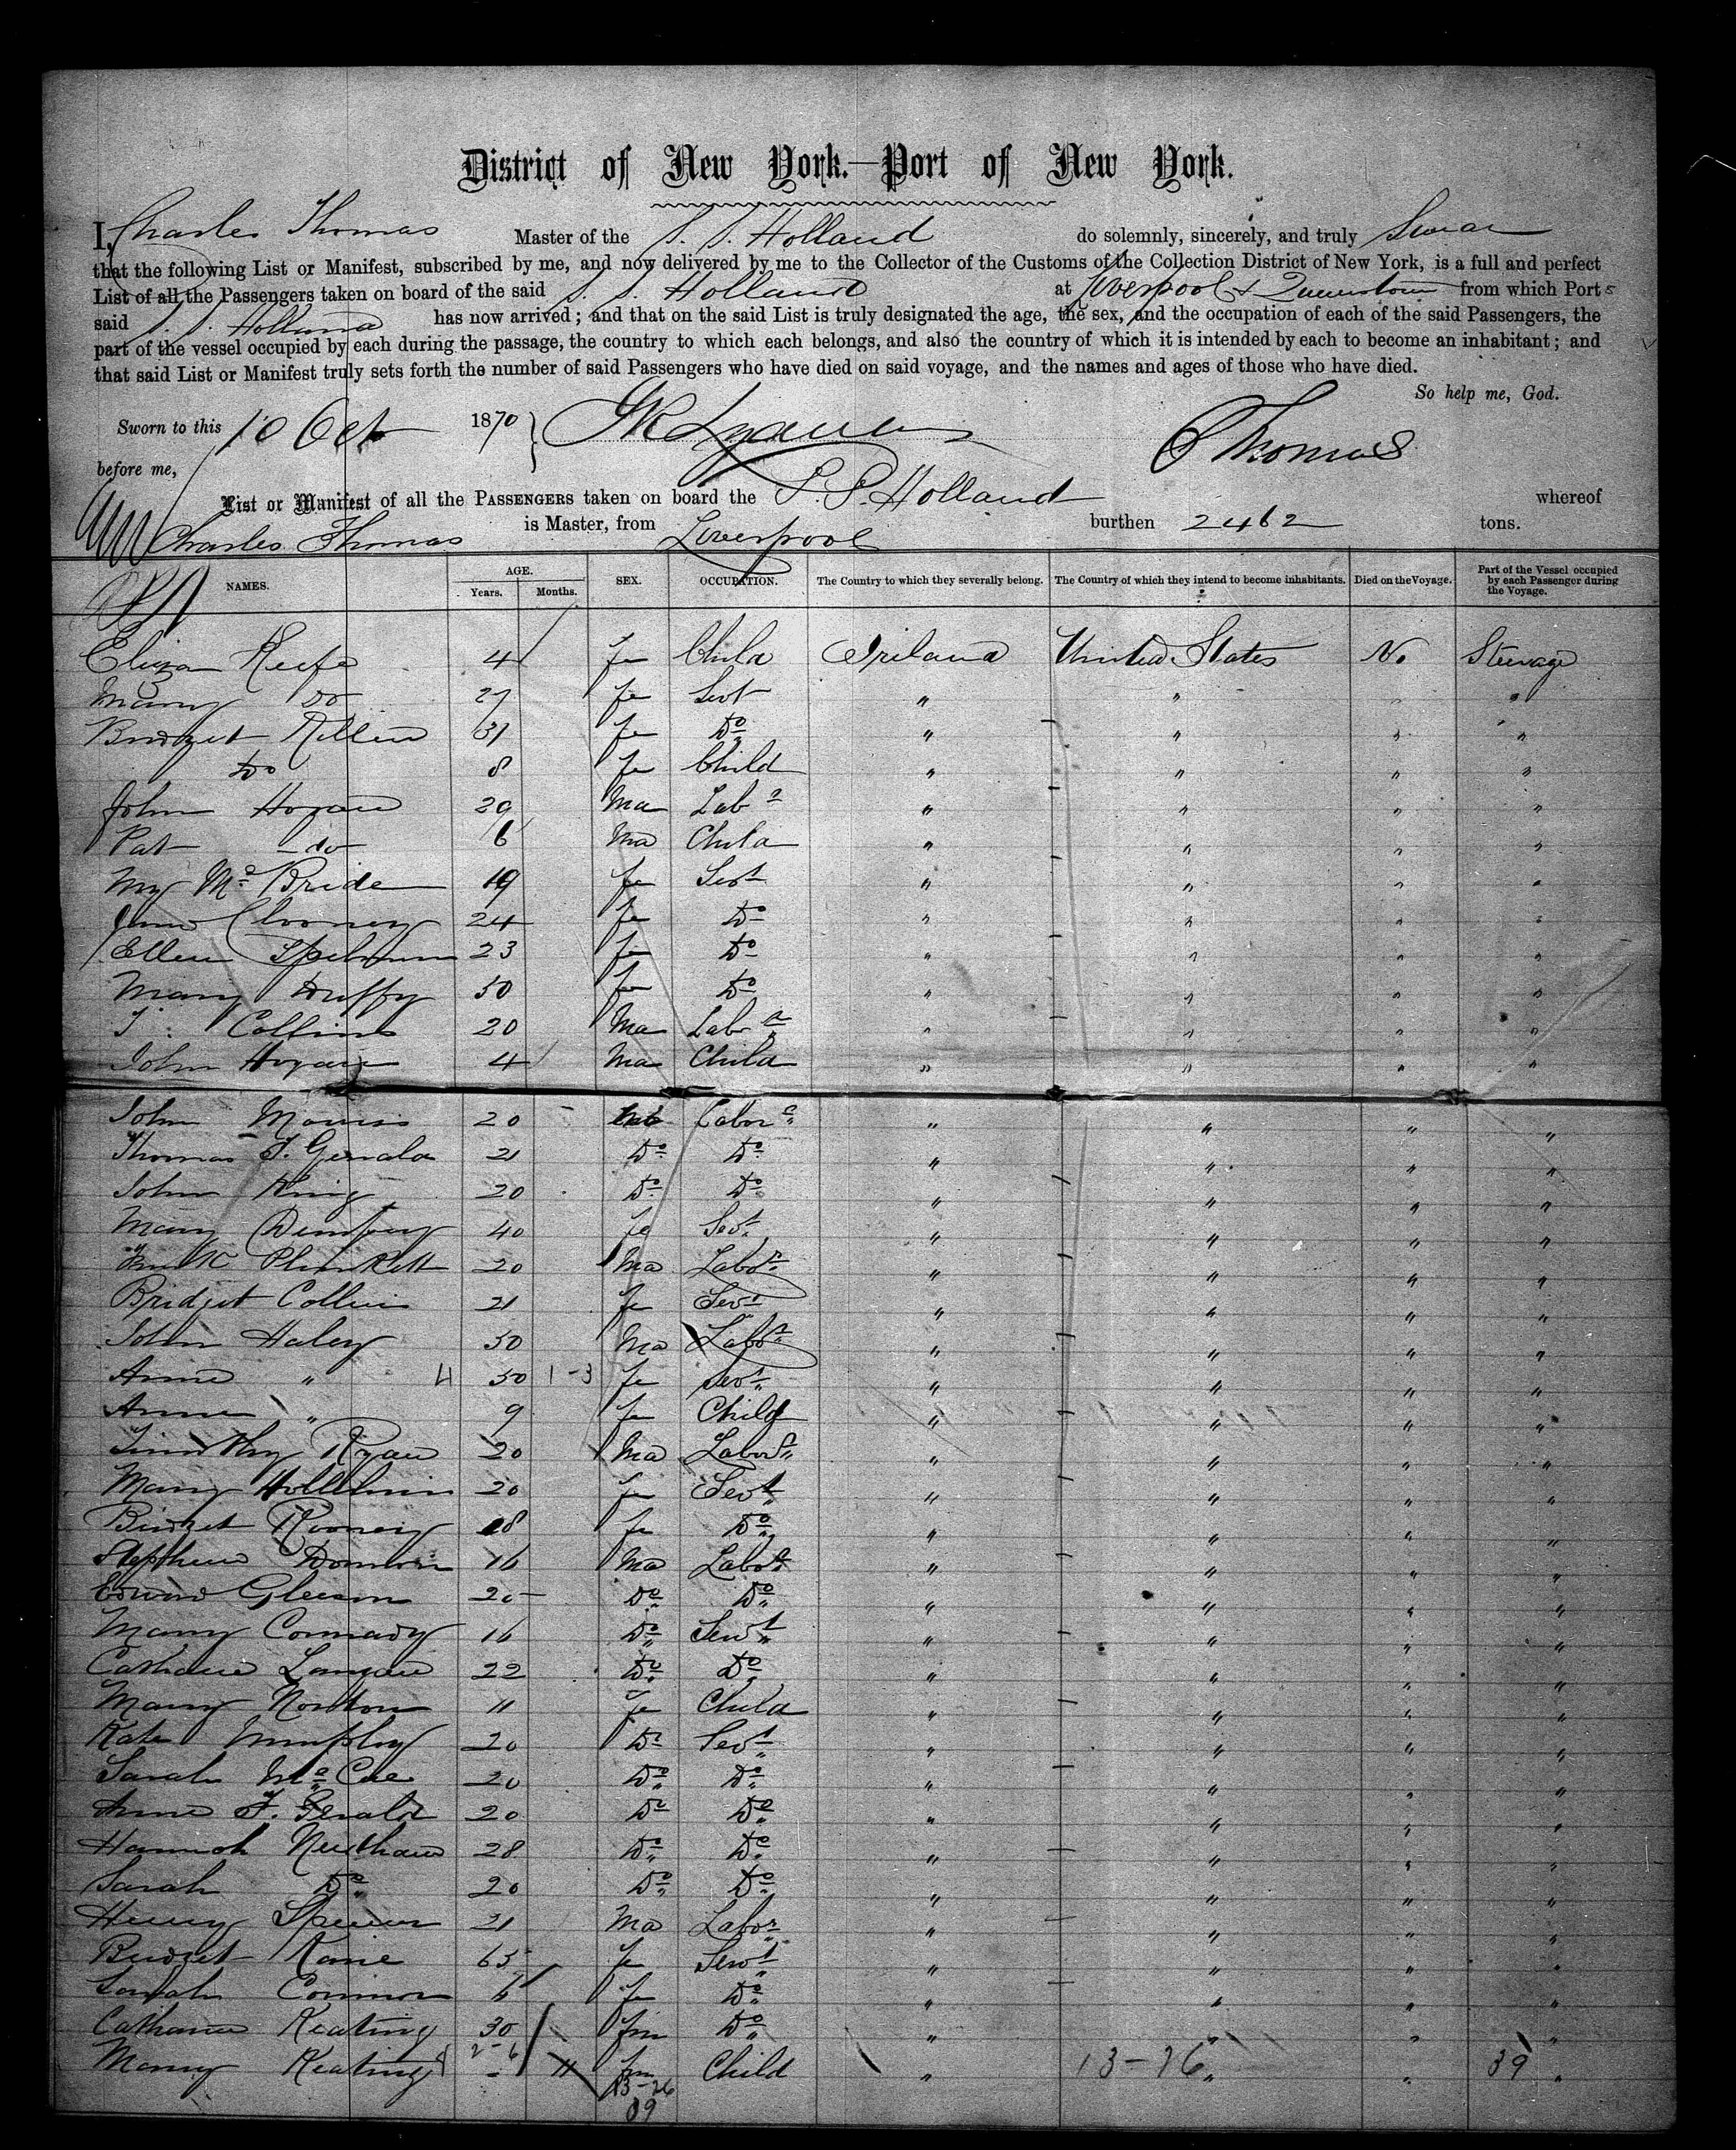 District of New York.—Port of New York.
I, Charles Thomas Master of the S. S. Holland do solemnly, sincerely, and truly Swear
that the following List or Manifest, subscribed by me, and now delivered by me to the Collector of the Customs of the Collection District of New York, is a full and perfect
List of all the Passengers taken on board of the said S. S. Holland at Liverpool & Queenstown from which Ports
said S. S. Holland has now arrived; and that on the said List is truly designated the age, the sex, and the occupation of each of the said Passengers, the
part of the vessel occupied by each during the passage, the country to which each belongs, and also the country of which it is intended by each to become an inhabitant; and
that said List or Manifest truly sets forth the number of said Passengers who have died on said voyage, and the names and ages of those who have died.
So help me, God.
Sworn to this 10 Oct 1870
before me,
C Thomas
List or Manifest of all the PASSENGERS taken on board the S. S. Holland whereof
Charles Thomas is Master, from Liverpool burthen 2462 tons.
NAMES. AGE. Years. Months. SEX. OCCUPATION. The Country to which they severally belong. The Country of which they intend to become inhabitants. Died on the Voyage. Part of the Vessel occupied by each Passenger during the Voyage.
Eliza Keefe 4 fe Child Ireland United States No Steerage
Mary Do 27 fe Servt " " " "
Bridget Killen 31 fe Do " " " "
Do 8 fe Child " " " "
John Hogan 29 Ma Labr " " " "
Pat do 6 Ma Child " " " "
My McBride 19 fe Servt " " " "
Clooney 24 fe Do " " " "
Ellen Spelman 23 fe Do " " " "
Mary Duffy 50 fe Do " " " "
T Collins 20 Ma Labr " " " "
John Hogan 4 Ma Child " " " "
John Morris 20 Labor " " " "
Thomas F. Gerald 21 Do Do " " " "
John King 20 Do Do " " " "
Mary Dempsey 40 fe Servt " " " "
Plunkett 20 Ma Labor " " " "
Bridget Collins 21 fe Servt " " " "
John Haley 50 Ma Labor " " " "
Anne " 50 1-3 fe Servt " " " "
Anne " 9 fe Child " " " "
Timothy Ryan 20 Ma Labor " " " "
Mary 20 fe Servt " " " "
Bridget Rooney 18 fe Do " " " "
Stephen 16 Ma Labor " " " "
Edward Gleeson 20 Do Do " " " "
Mary Conrady 16 Do Servt " " " "
Catharine Langan 22 Do Do " " " "
Mary Norton 11 fe Child " " " "
Kate Murphy 20 Do Servt " " " "
Sarah McCue 20 Do Do " " " "
Anne F. Gerald 20 Do Do " " " "
Hannah 28 Do Do " " " "
Sarah Do 20 Do Do " " " "
Henry Spencer 21 Ma Labor " " " "
Bridget Kane 65 fe Servt " " " "
Sarah Connor 6 fe Do " " " "
Catharine Keating 30 fm Do " " " "
Mary Keating - 11 fm Child " 13-26 " " 39 "
13-26
39